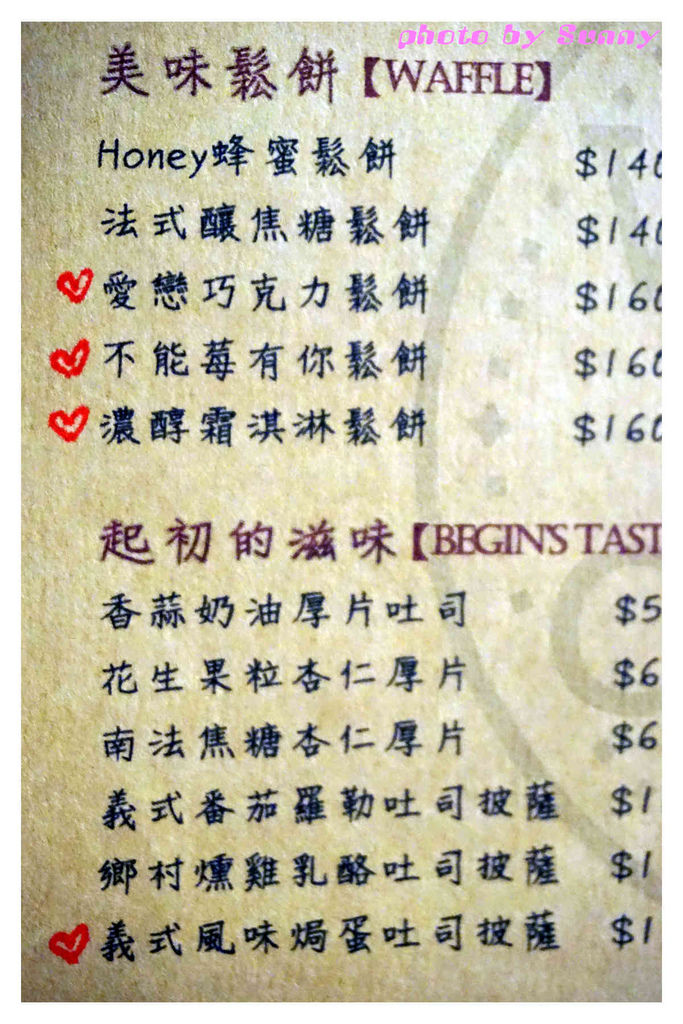 photo by Sunny
美味鬆餅【WAFFLE】
Honey蜂蜜鬆餅 $140
法式釀焦糖鬆餅 $140
愛戀巧克力鬆餅 $160
不能莓有你鬆餅 $160
濃醇霜淇淋鬆餅 $160
起初的滋味【BEGIN'S TAST
香蒜奶油厚片吐司 $5
花生果粒杏仁厚片 $6
南法焦糖杏仁厚片 $6
義式番茄羅勒吐司披薩 $1
鄉村燻雞乳酪吐司披薩 $1
義式風味焗蛋吐司披薩 $1